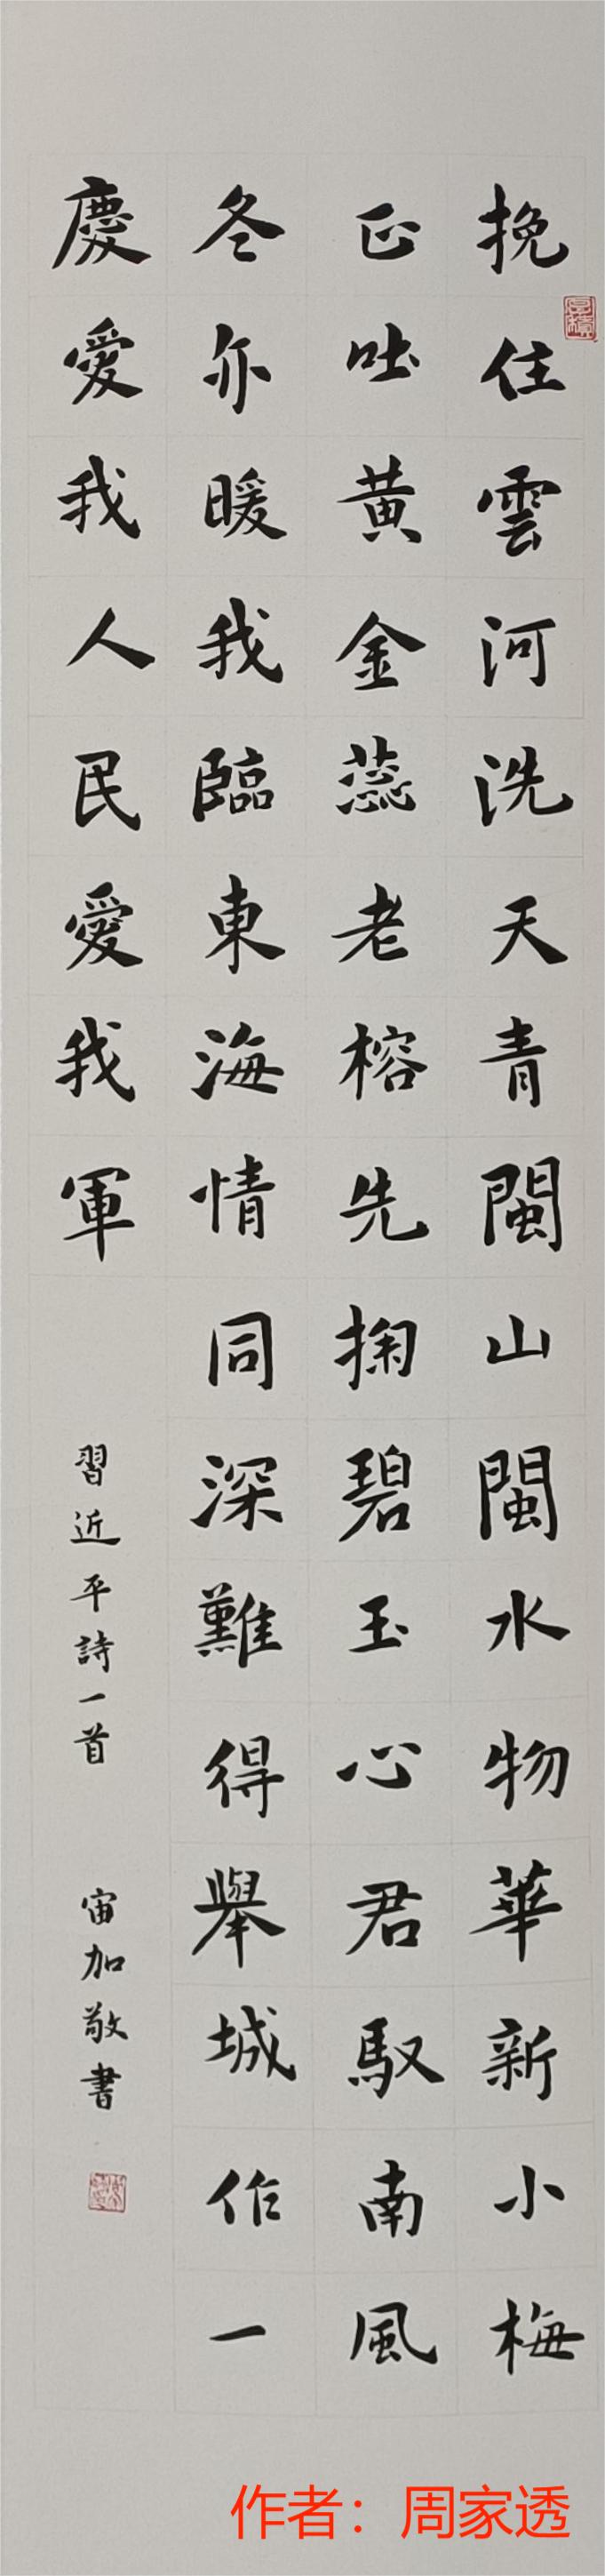 挽住雲河洗天青閩山閩水物華新小梅
正吐黄金蕊老榕先掬碧玉心君馭南風
冬亦暖我臨東海情同深難得舉城作一
慶愛我人民愛我軍
習近平詩一首
宙加敬書
作者：周家透